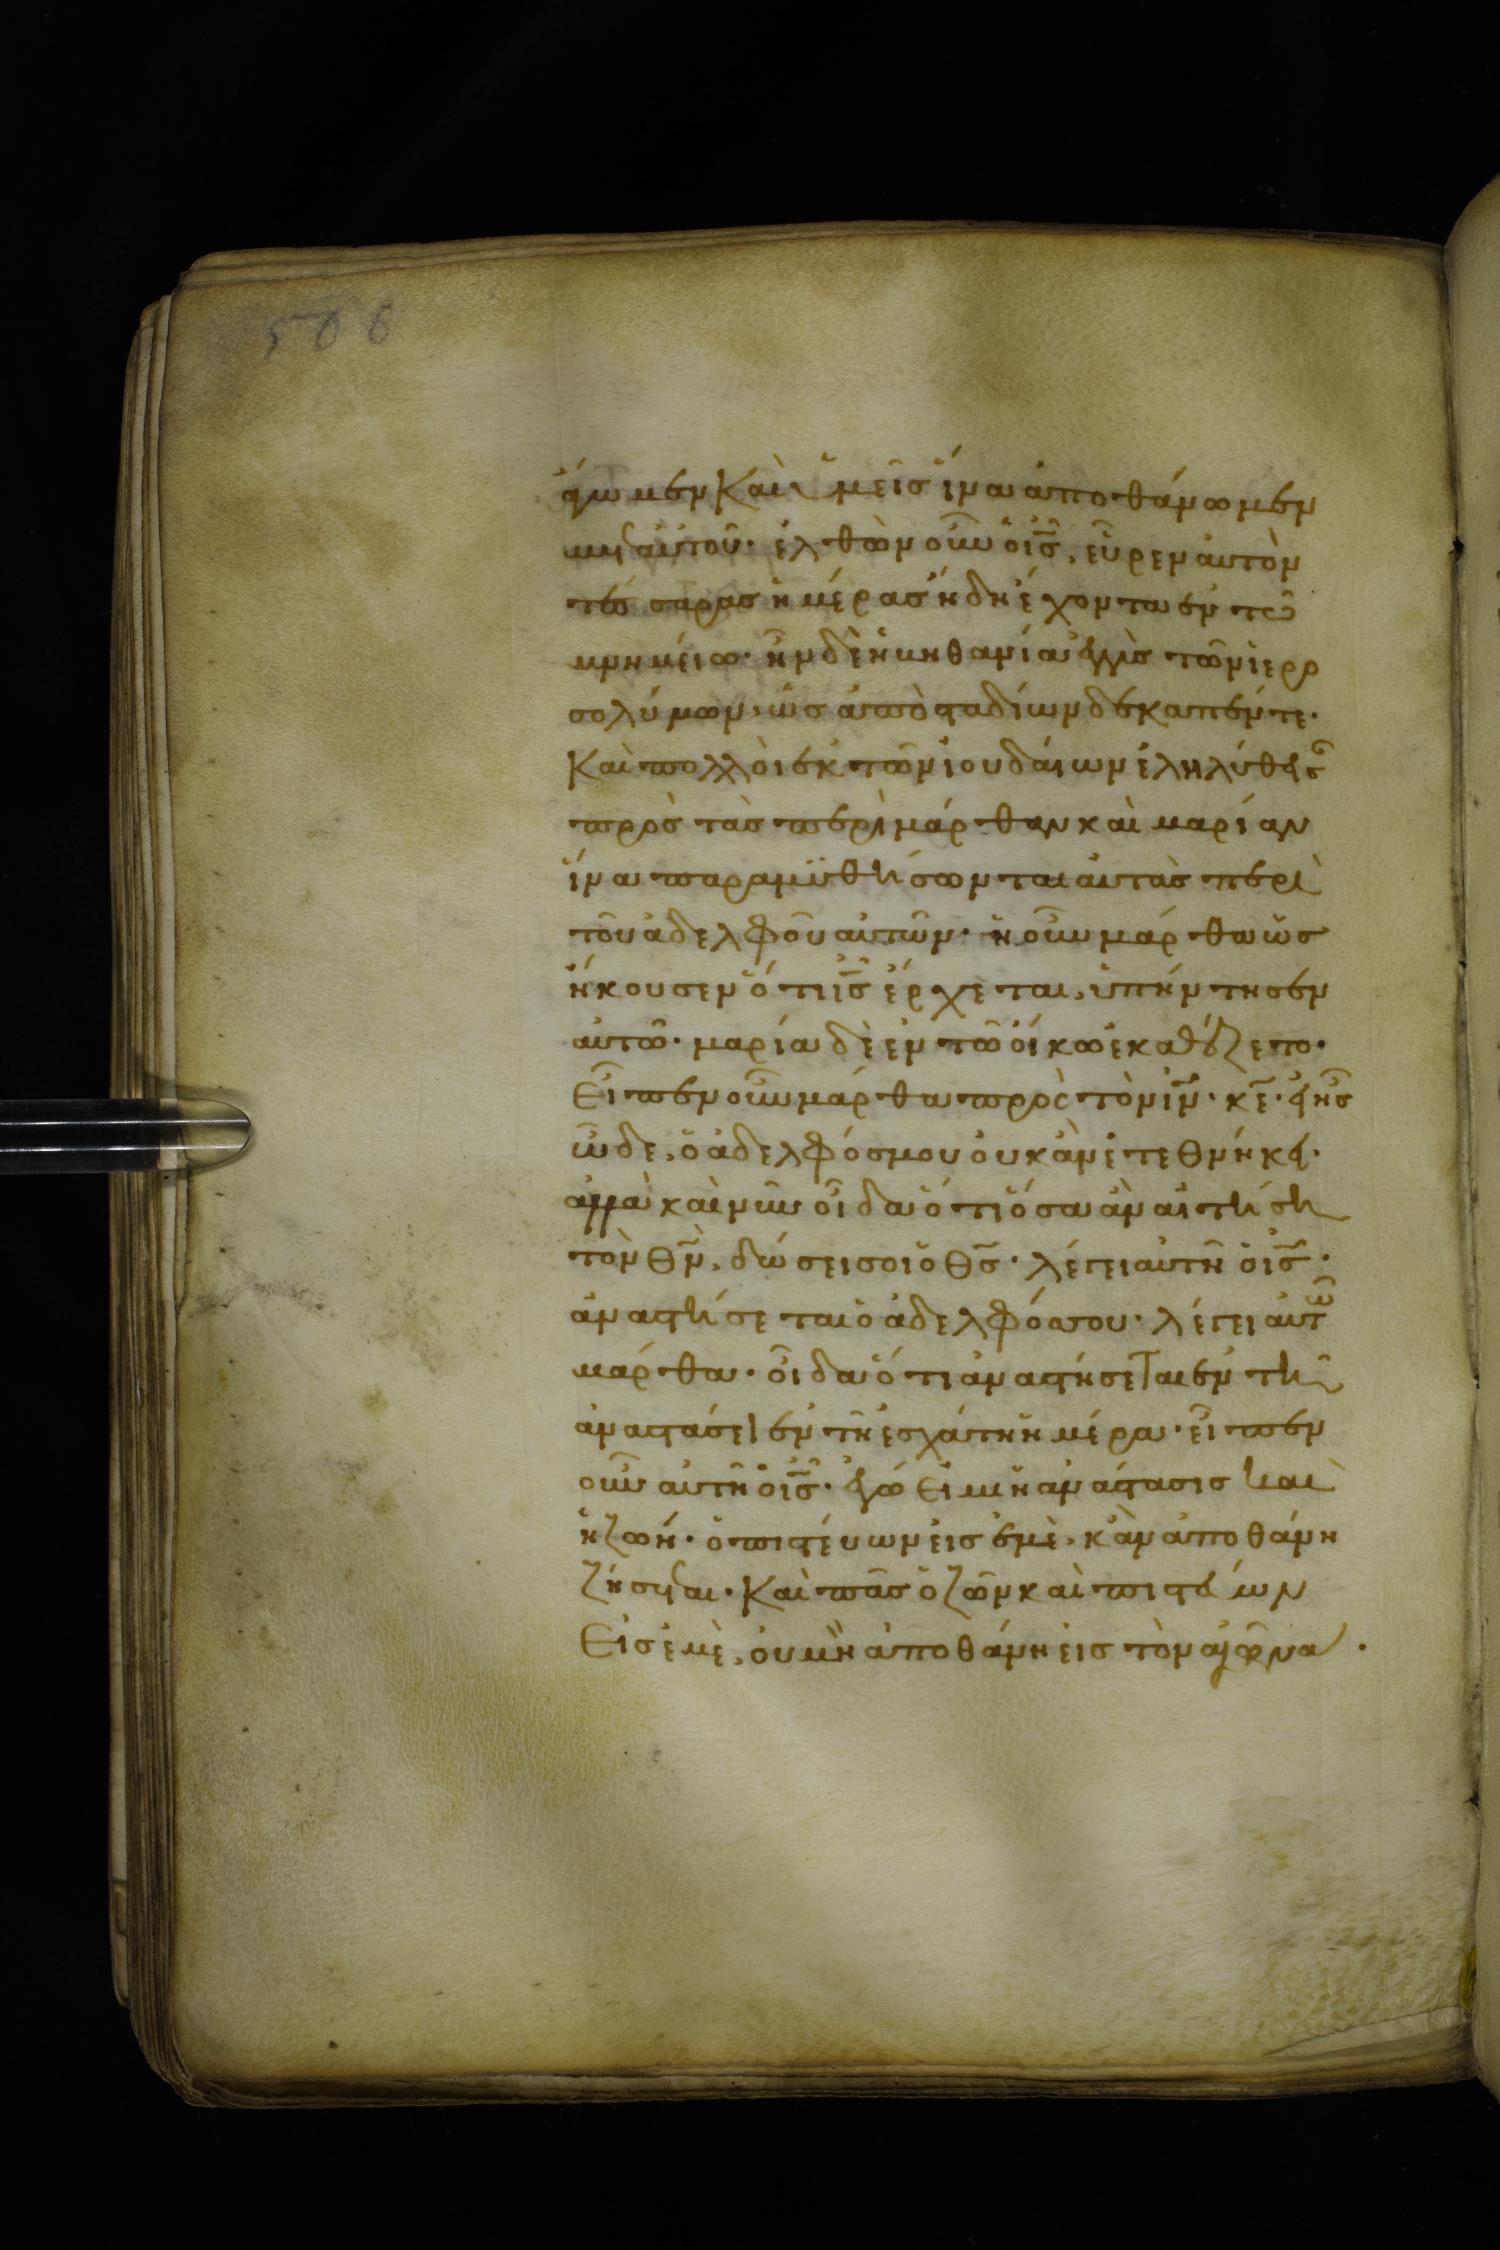 506
ἄγωμεν καὶ ἡμεῖς ἵνα ἀποθάνωμεν
μετ αὐτοῦ· ἐλθὼν οὖν ὁ ις̅, εὗρεν αὐτὸν
τέσσαρας ἡμέρας ἤδη ἔχοντα ἐν τῶ
μνημείω· ἦν δὲ ἡ βηθανία ἐγγὺς τῶν ἱερο
σολύμων, ὡς ἀπὸ σταδίων δέκαπέντε·
Καὶ πολλοὶ ἐκ τῶν ἰουδαίων ἐληλύθεισ
πρὸς τὰς περὶ μάρθαν καὶ μαρίαν
ἵνα παραμυθήσωνται αὐτὰς περὶ
τοῦ ἀδελφοῦ αὐτῶν· ἡ οὖν μάρθα ὡς
ἤκουσεν ὅτι ις̅ ἔρχεται, ὑπήντησεν
αὐτῶ· μαρία δὲ ἐν τῶ οἴκω ἐκαθέζετο·
Εἶπεν οὖν μάρθα πρὸς τὸν ιν̅· κε̅· εἰ ἦς
ὧδε, ὁ ἀδελφός μου οὐκ ἂν ἐτεθνήκει·
ἀλλὰ καὶ νῦν οἶδα ὅτι ὅσα ἂν αἰτήση
τὸν θν̅, δώσει σοι ὁ θς̅· λέγει αὐτῆ ὁ ις̅·
ἀναστήσεται ὁ ἀδελφός σου· λέγει αὐτῶ
μάρθα· οἶδα ὅτι ἀναστήσεται ἐν τῆ
ἀναστάσει ἐν τῆ ἐσχάτη ἡμέρα· εἶπεν
οὖν αὐτῆ ὁ ις̅· ἐγώ εἰμι ἡ ἀνάστασις καὶ
ἡ ζωή· ὁ πιστεύων εἰς ἐμὲ, κἂν ἀποθάνη
ζήσεται· Καὶ πᾶς ὁ ζῶν καὶ πιστεύων
Εἰς ἐμὲ, οὐ μὴ ἀποθάνη εἰς τὸν αἰῶνα·